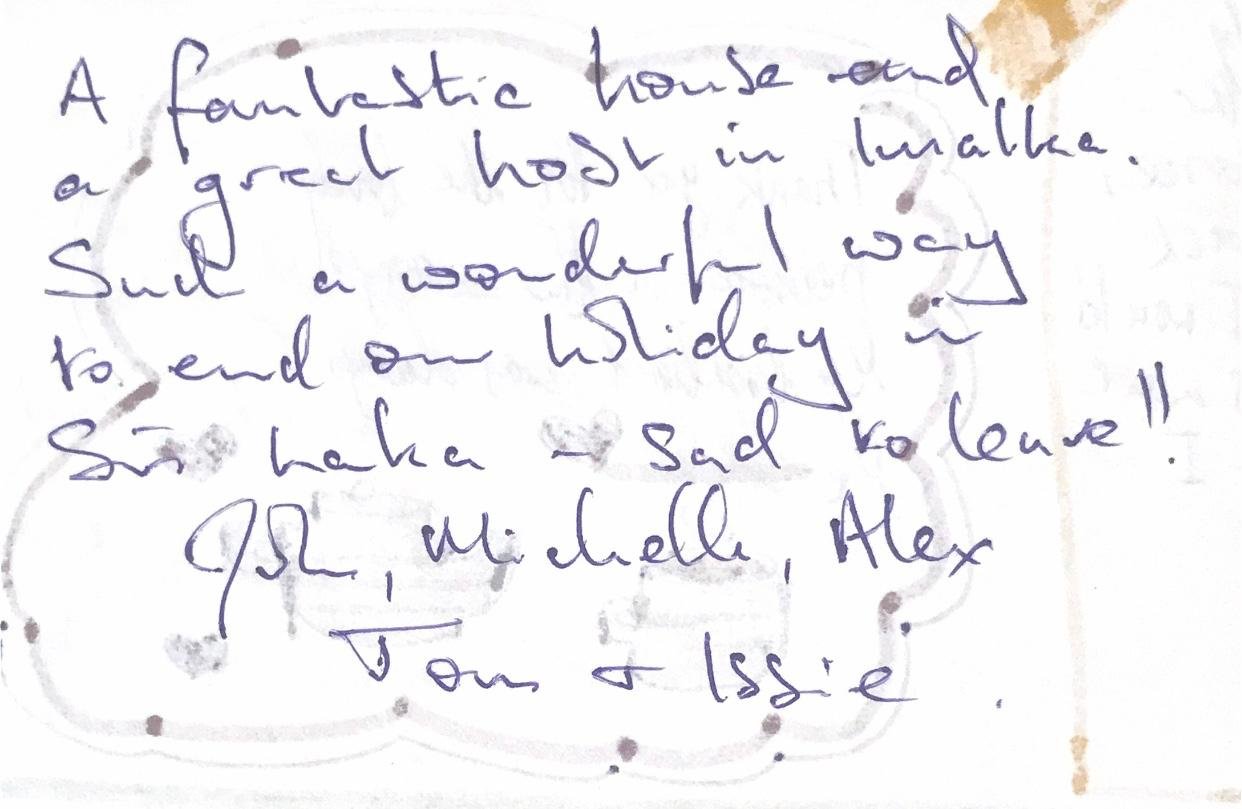 A fantastic house and
a great host in
Such a wonderful way
to end our holiday in
Sri Lanka - sad to leave!!
John, Michelle, Alex
Tom + Issie.